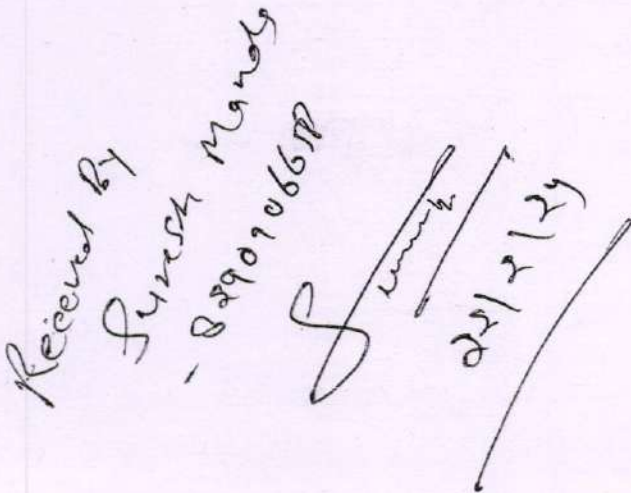 Received By
Suresh Manoj
- 8290906618
22/2/24